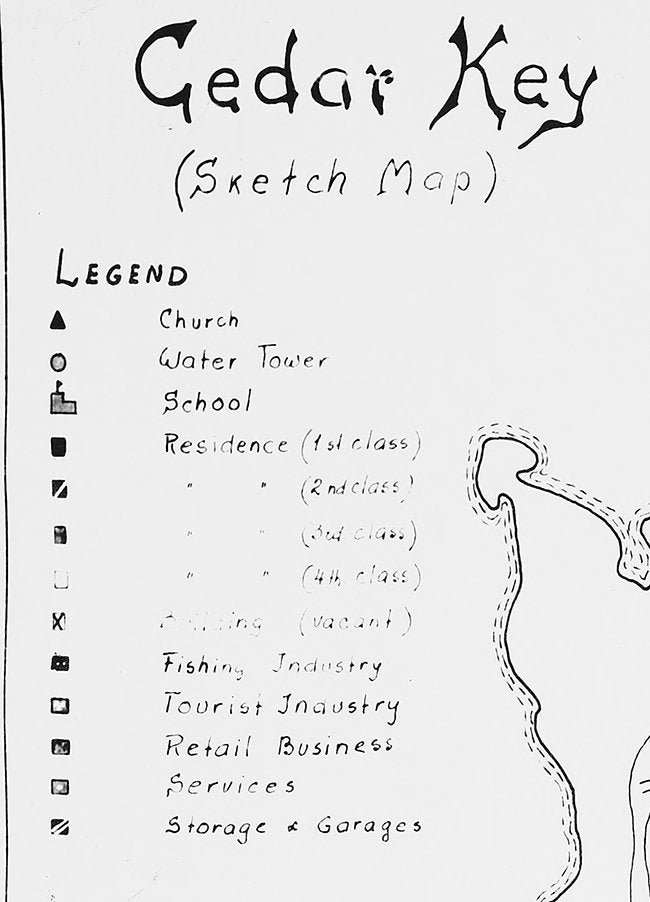 Cedar Key
(Sketch Map)
LEGEND
Church
Water Tower
School
Residence (1st class)
" " (2nd class)
" " (3rd class)
" " (4th class)
Building (vacant)
Fishing Industry
Tourist Industry
Retail Business
Services
Storage & Garages